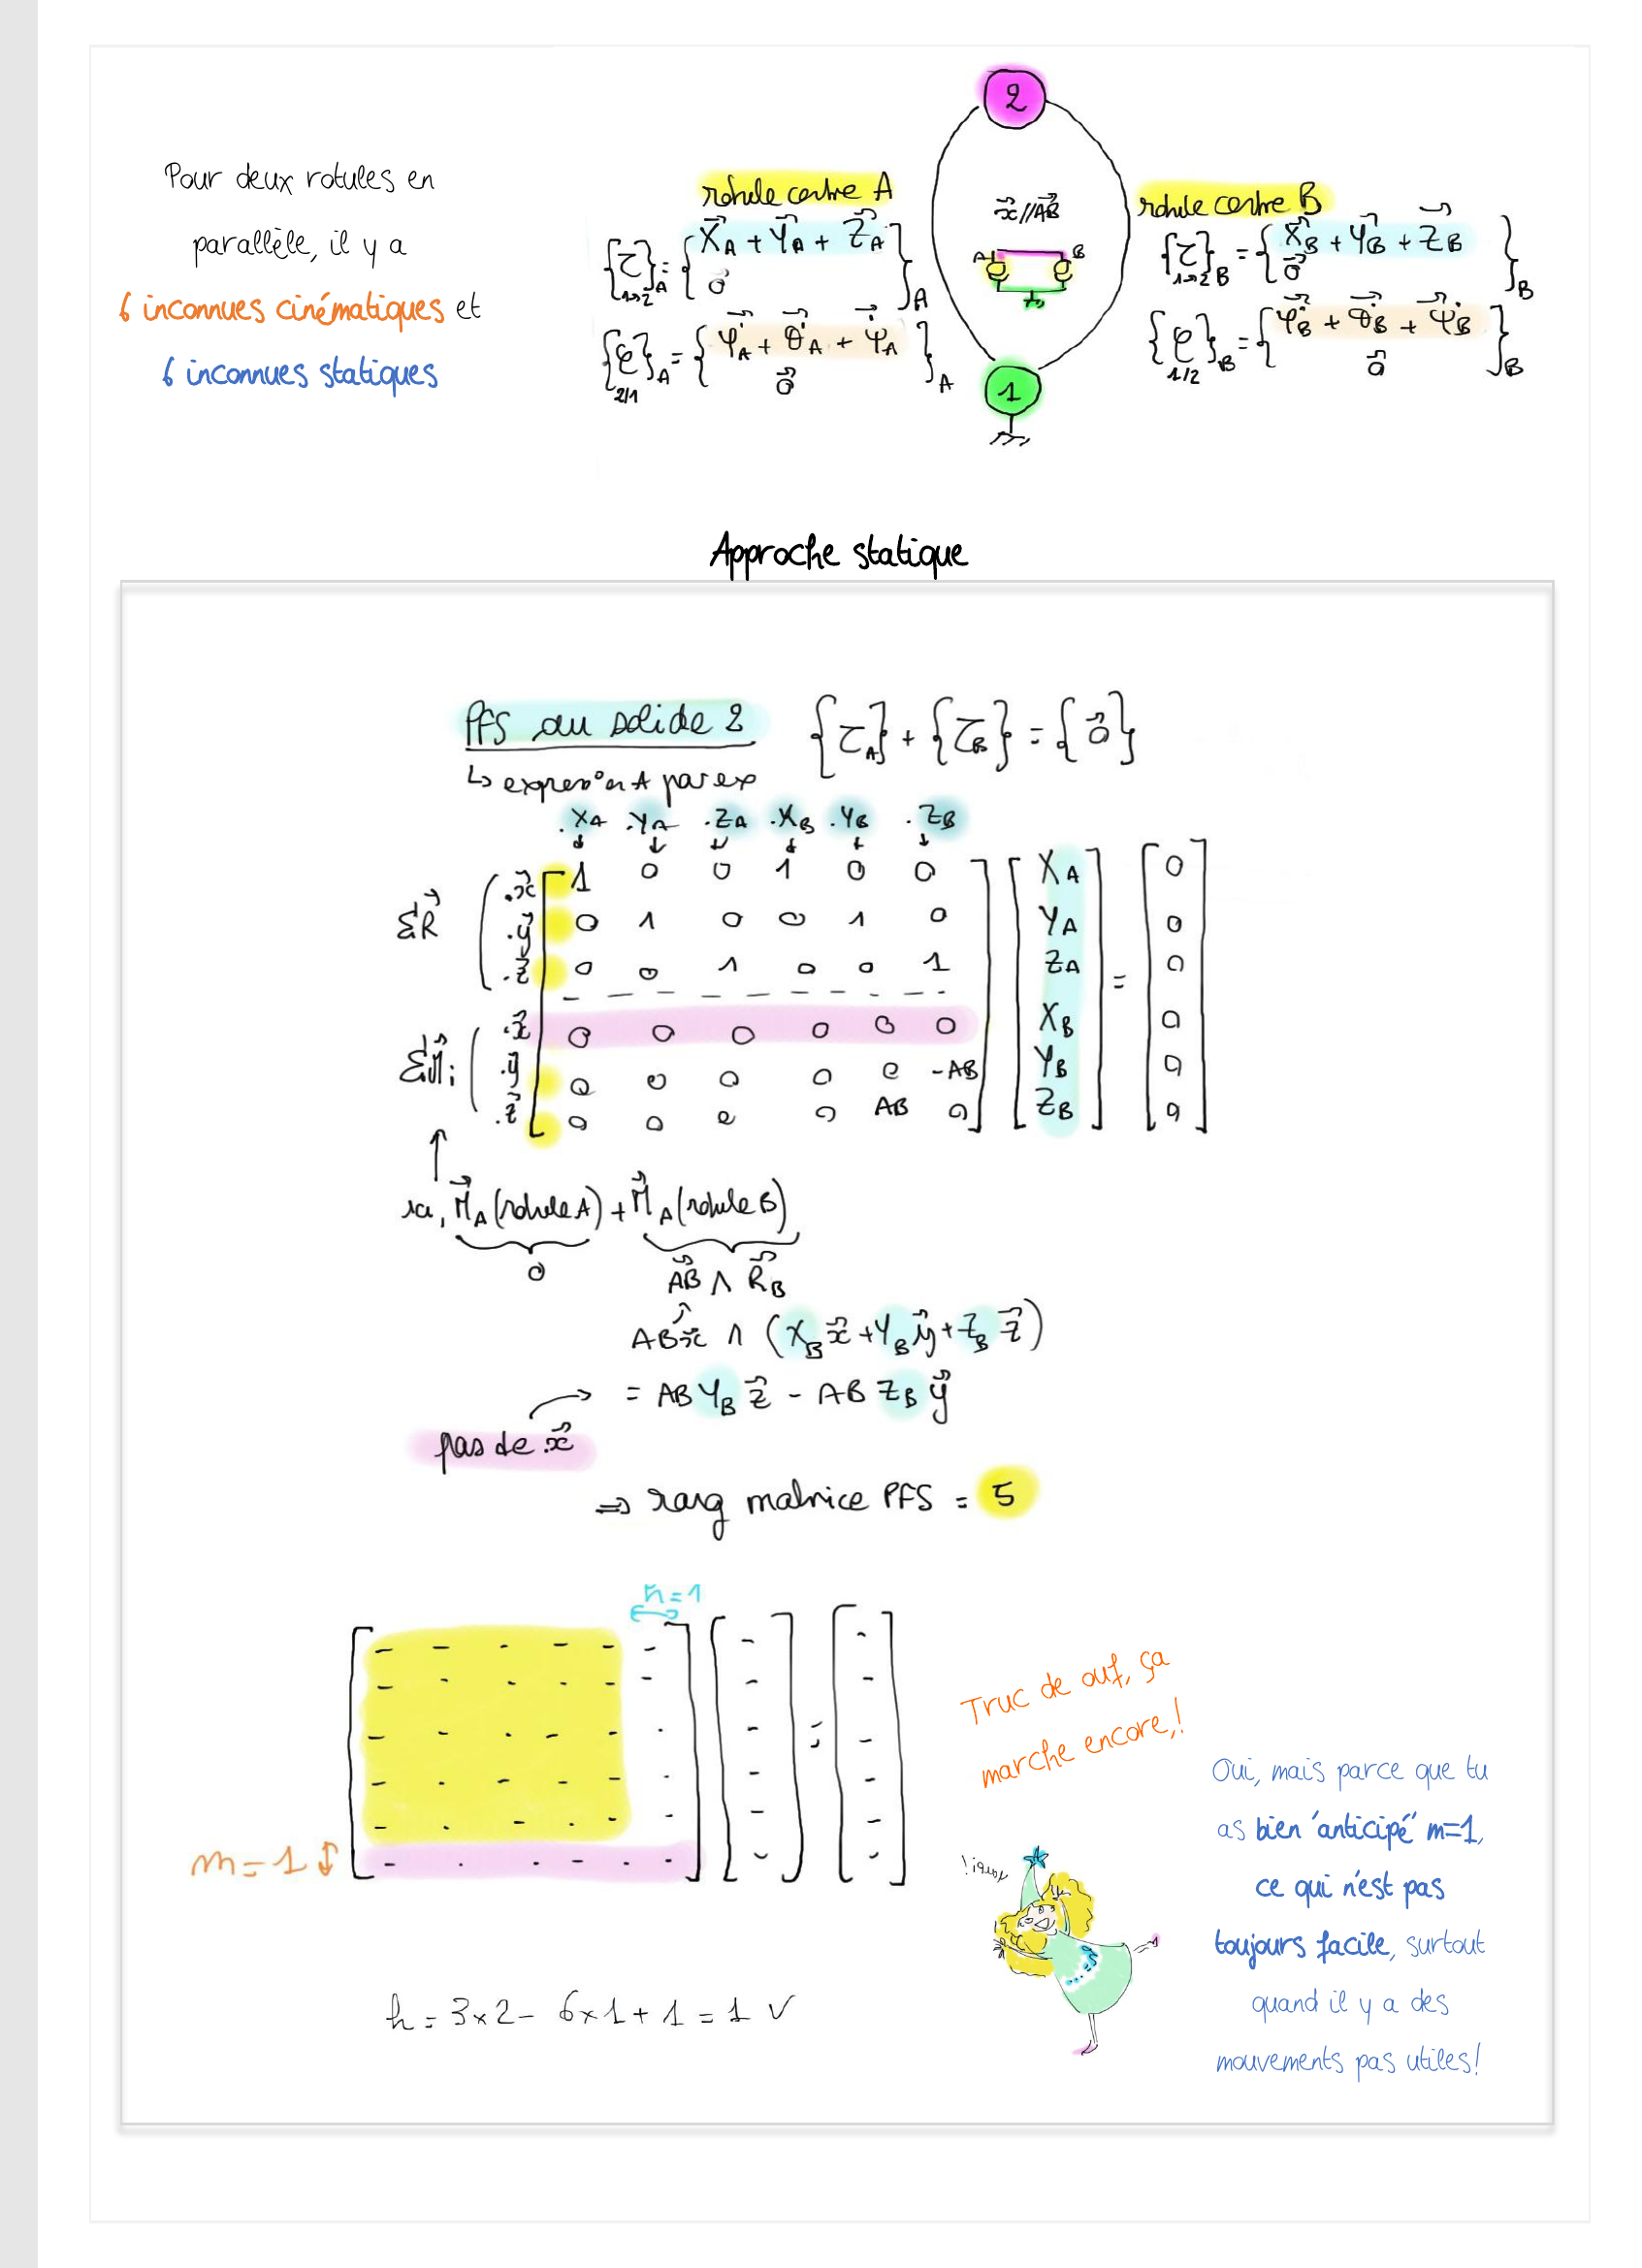 Pour deux rotules en
parallèle, il y a
6 inconnues cinématiques et
6 inconnues statiques
2
rotule centre A
{τ}A = {X⃗A + Y⃗A + Z⃗A
1→2
0⃗ }A
{𝒞}A = {φ̇A + θ̇A + ψ̇A
2/1
0⃗ }A
x⃗//AB⃗
A B
1
rotule centre B
{τ}B = {X⃗B + Y⃗B + Z⃗B
1→2
0⃗ }B
{𝒞}B = {φ̇B + θ̇B + ψ̇B
1/2
0⃗ }B
Approche statique
PFS au solide 2 {τA} + {τB} = {0⃗}
↳ expres° en A par ex
.XA .YA .ZA .XB .YB .ZB
ΣR⃗
.x⃗ 1 0 0 1 0 0 XA 0
.y⃗ 0 1 0 0 1 0 YA 0
.z⃗ 0 0 1 0 0 1 ZA = 0
ΣM⃗i
.x⃗ 0 0 0 0 0 0 XB 0
.y⃗ 0 0 0 0 0 -AB YB 0
.z⃗ 0 0 0 0 AB 0 ZB 0
ici, M⃗A (rotule A) + M⃗A (rotule B)
0 AB⃗ ∧ R⃗B
AB x⃗ ∧ (XB x⃗ + YB y⃗ + ZB z⃗)
= AB YB z⃗ - AB ZB y⃗
pas de x⃗
⇒ rang matrice PFS = 5
h=1
m=1
h = 3×2 - 6×1 + 1 = 1 ✓
Truc de ouf, ça
marche encore,!
Oui, mais parce que tu
as bien 'anticipé' m=1,
ce qui n'est pas
toujours facile, surtout
quand il y a des
mouvements pas utiles!